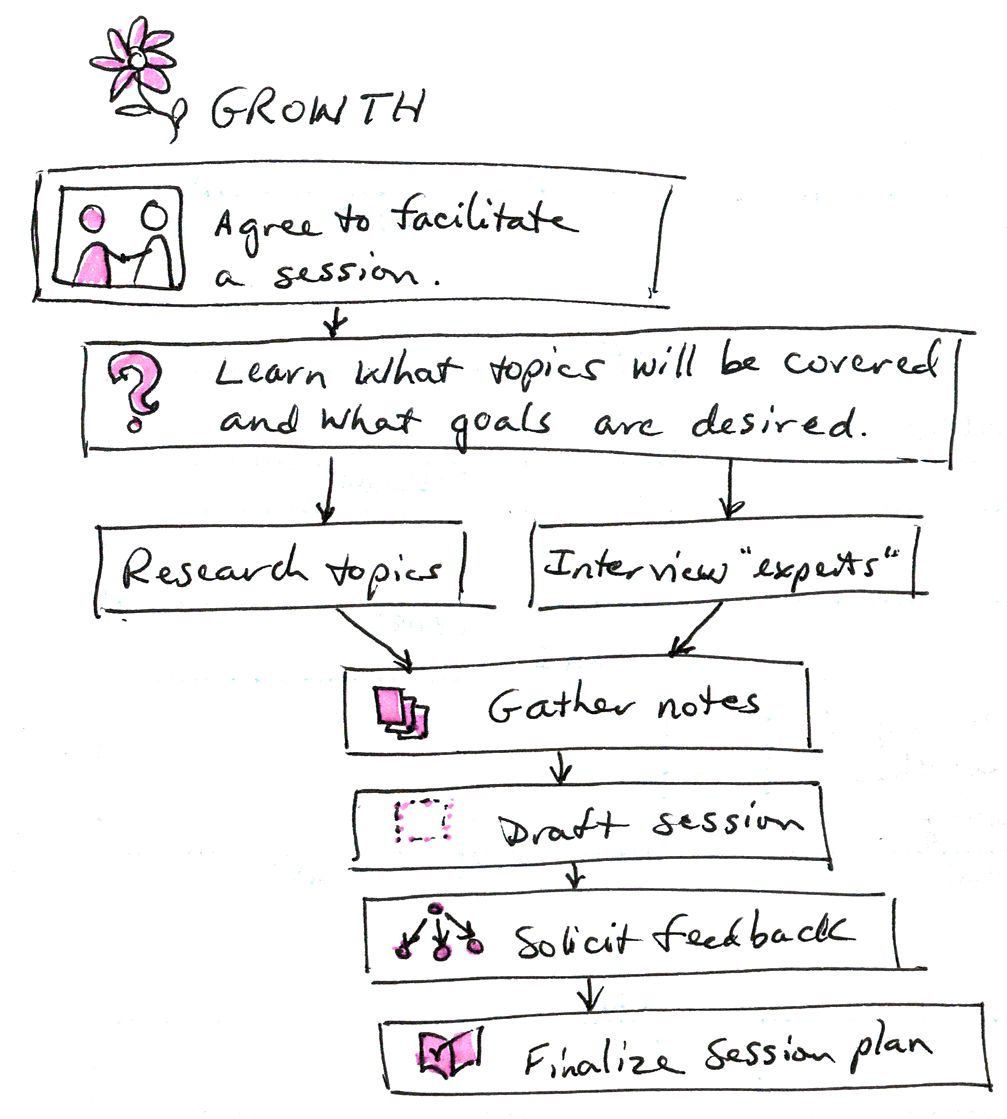 GROWTH
Agree to facilitate
a session.
Learn what topics will be covered
and what goals are desired.
Research topics
Interview "experts"
Gather notes
Draft session
Solicit feedback
Finalize session plan